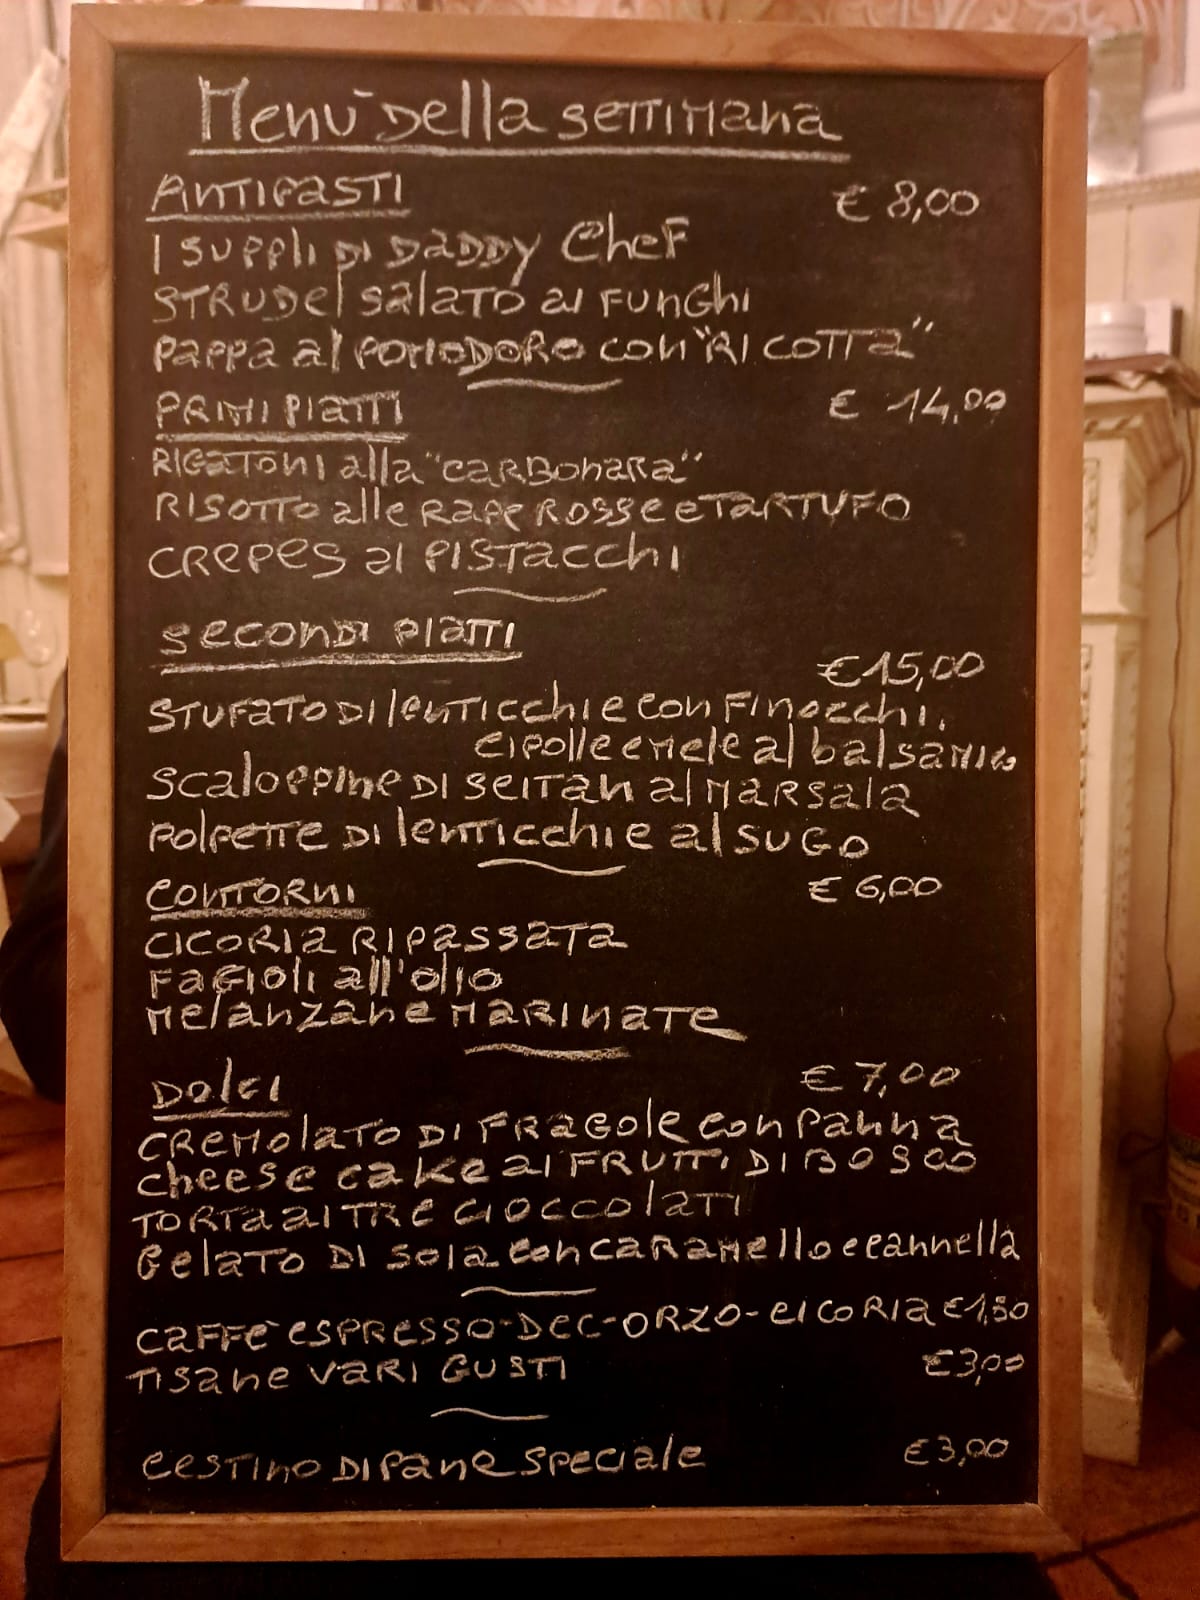 Menù della settimana
Antipasti € 8,00
I supplì di Daddy Chef
Strudel salato ai funghi
Pappa al pomodoro con "Ricotta"
Primi piatti € 14,00
Rigatoni alla "carbonara"
Risotto alle rape rosse e tartufo
Crepes ai pistacchi
Secondi piatti
€ 15,00
Stufato di lenticchie con finocchi,
cipolle e mele al balsamico
Scaloppine di seitan al marsala
Polpette di lenticchie al sugo
Contorni € 6,00
Cicoria ripassata
Fagioli all'olio
Melanzane marinate
Dolci € 7,00
Cremolato di fragole con panna
Cheese cake ai frutti di bosco
Torta ai tre cioccolati
Gelato di soia con caramello e cannella
Caffè espresso-dec-orzo-cicoria €1,50
Tisane vari gusti €3,00
Cestino di pane speciale €3,00